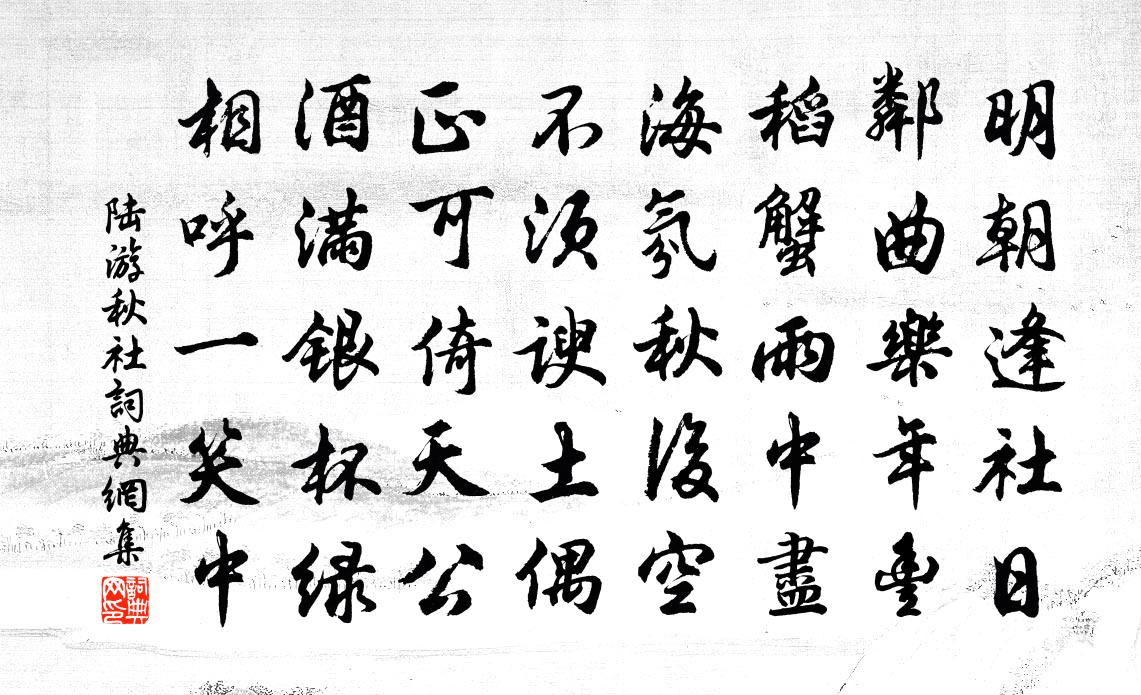 明朝逢社日
鄰曲樂年豐
稻蟹雨中盡
海氛秋後空
不須諛土偶
正可倚天公
酒滿銀杯綠
相呼一笑中
陸游秋社詞典網集
詞典網印